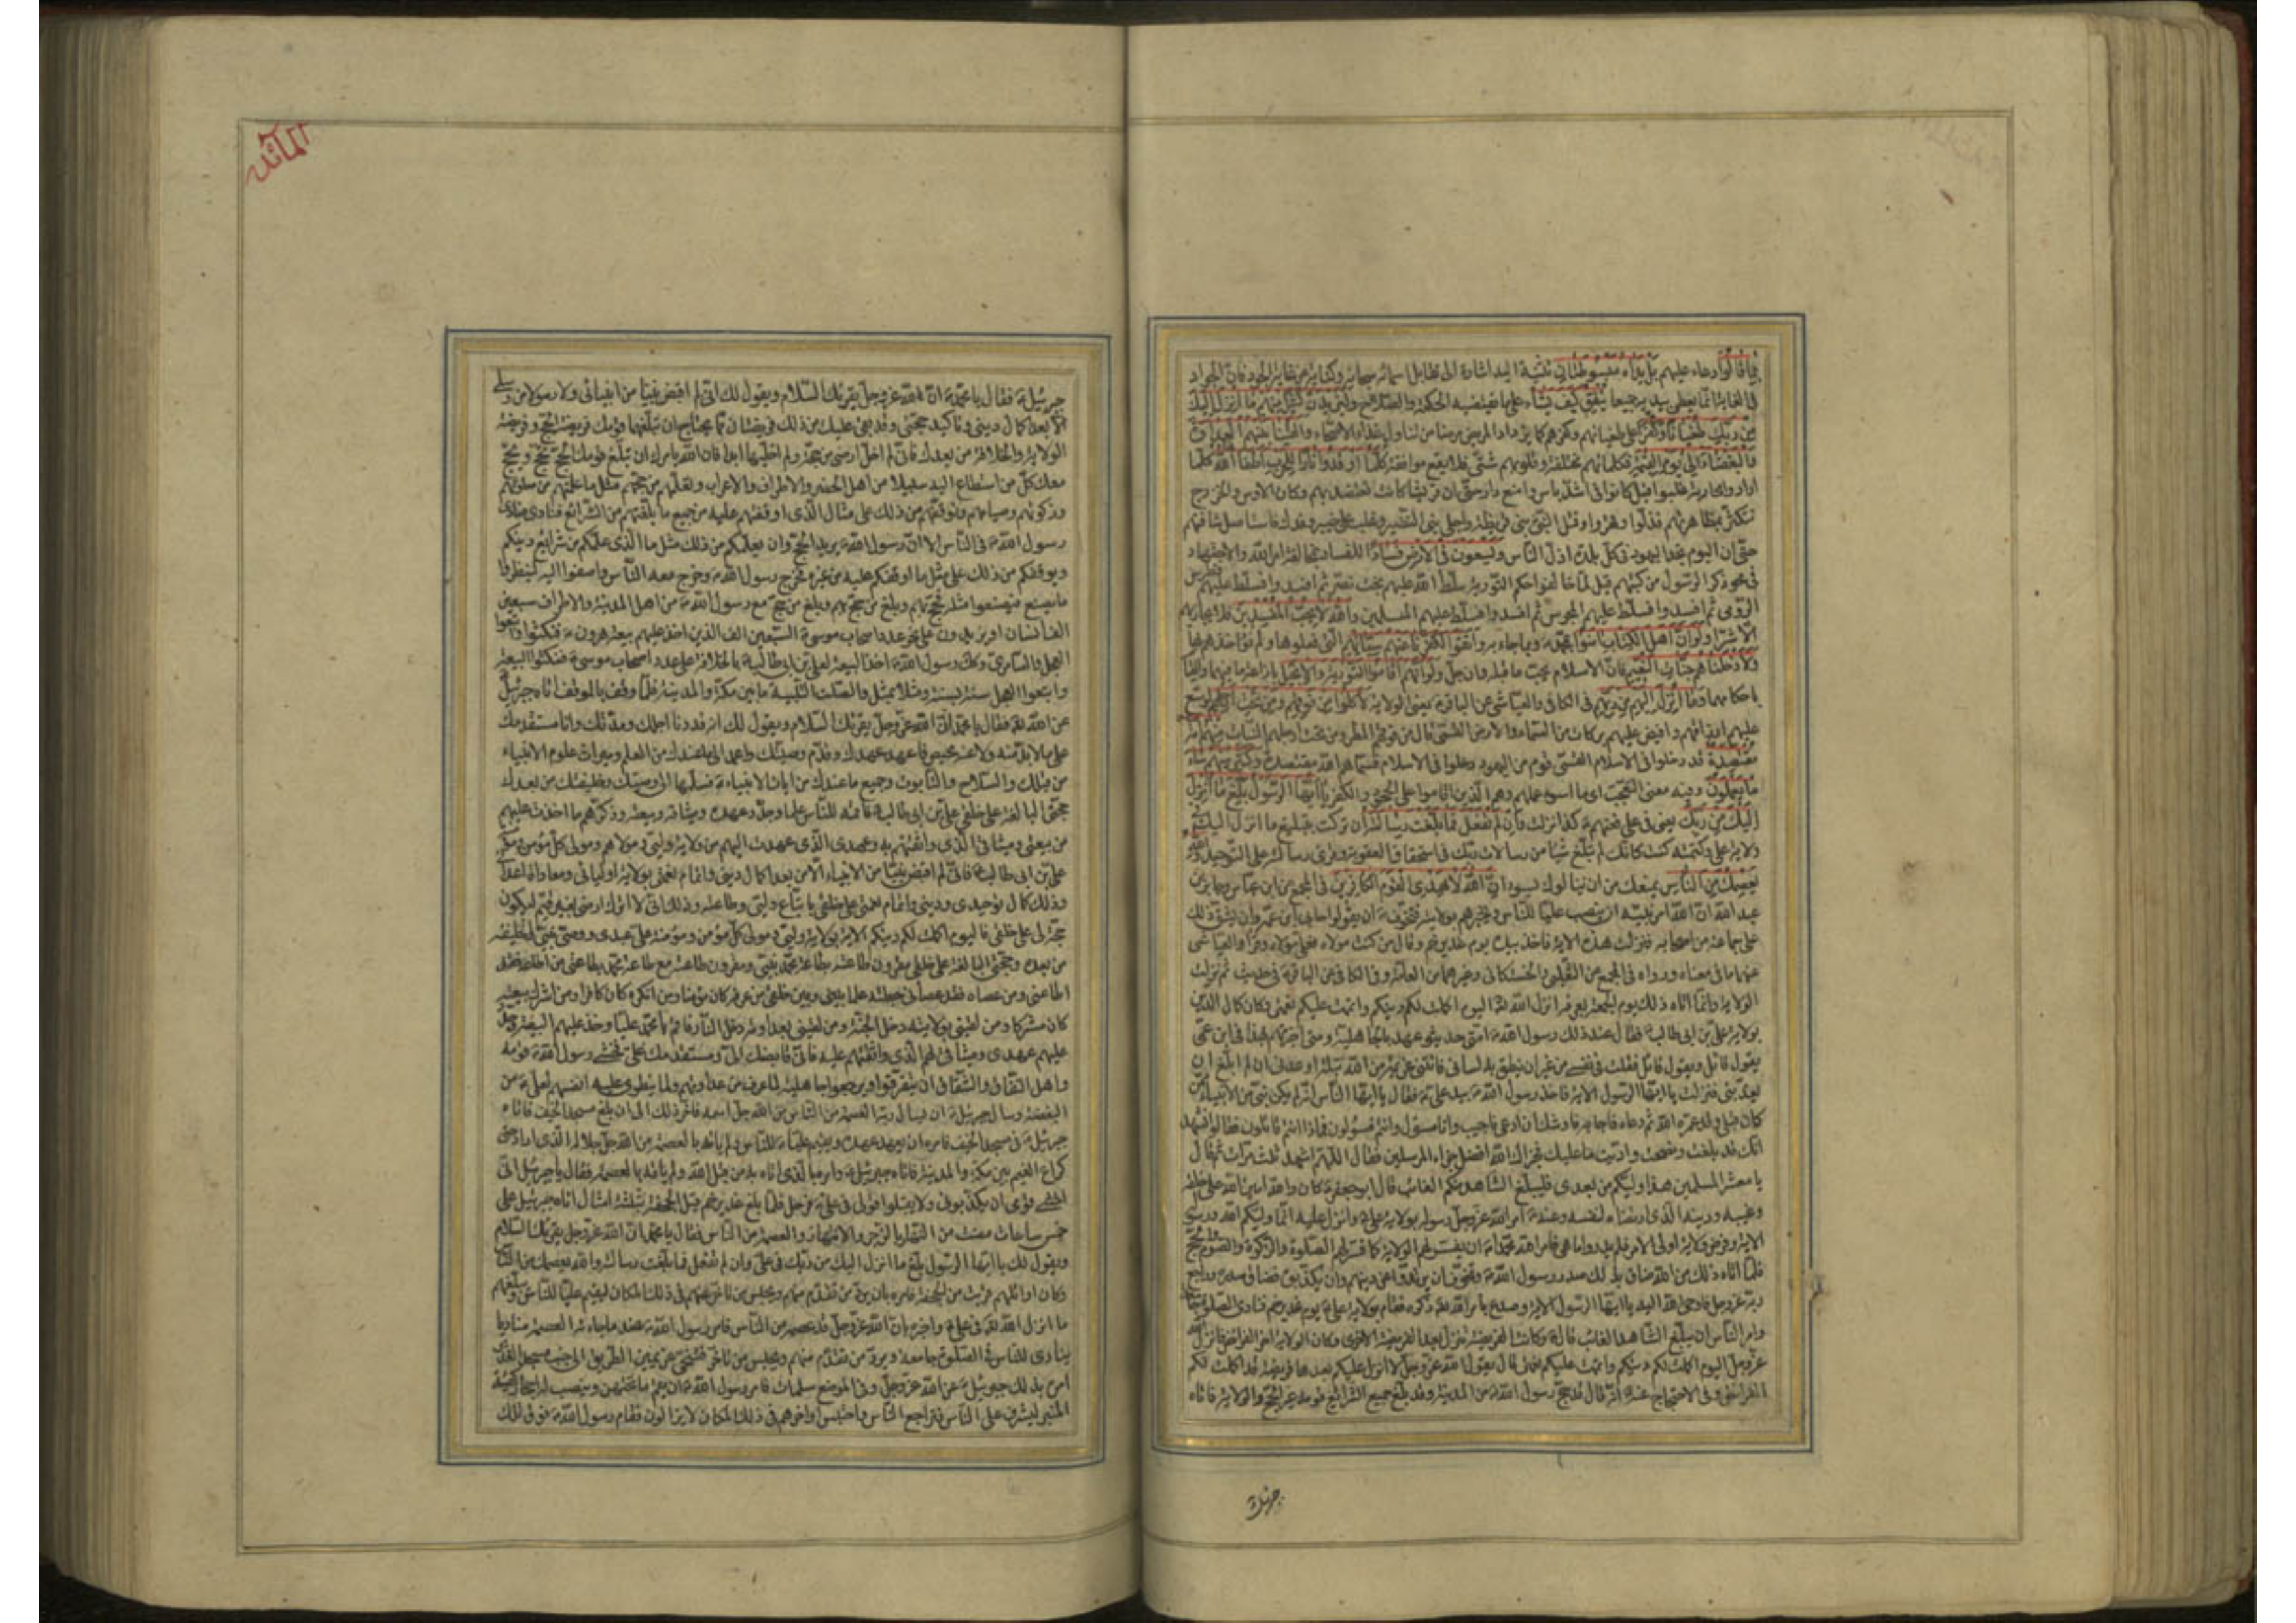 بما قالوا دعاء عليهم بل يداه مبسوطتان تثنية اليد اشارة الى تقابل اسمائه سبحانه وكناية عن غاية الجود فان الجواد
في الغاية انما يعطى بيديه جميعا ينفق كيف يشاء على ما تقتضيه الحكمة والصلاح وليزيدن كثيرا منهم ما انزل اليك
من ربك طغيانا وكفرا على طغيانهم وكفرهم كما يزداد المريض مرضا من تناول غذاء الاصحاء والقينا بينهم العداوة
والبغضاء الى يوم القيمة فكلماتهم مختلفة وقلوبهم شتى فلا يقع موافقة كلما اوقدوا نارا للحرب اطفأها الله كلما
ارادوا محاربة غلبوا قيل كانوا في اشد باس وامنع دار حتى ان قريشا كانت تعتضد بهم وكان الاوس والخزرج
تتكثر بمظاهرتهم فذلوا وقهروا وقتل النبي بني قريظة واجلى بني النضير وغلب على خيبر وفدك فاستاصل شافتهم
حتى ان اليوم تجد اليهود في كل بلدة اذل الناس ويسعون في الارض فسادا للفساد بمخالفة امر الله والاجتهاد
في محو ذكر الرسول من كتبهم قيل لما خالفوا حكم التورية سلط الله عليهم بخت نصر ثم افسدوا فسلط عليهم فطرس
الرومي ثم افسدوا فسلط عليهم المجوس ثم افسدوا فسلط عليهم المسلمين والله لا يحب المفسدين فلا يجازيهم
الا شرا ولو ان اهل الكتاب امنوا بمحمد وبما جاء به واتقوا لكفرنا عنهم سيئاتهم التي فعلوها ولم نؤاخذهم بها
ولادخلناهم جنات النعيم فان الاسلام يجب ما قبله وان جل ولو انهم اقاموا التورية والانجيل باذاعة ما فيهما والقيام
باحكامهما وما انزل اليهم من ربهم في الكافي والعياشي عن الباقر يعني الولاية لاكلوا من فوقهم ومن تحت ارجلهم لوسع
عليهم ارزاقهم وافيض عليهم بركات من السماء والارض القمي قال من فوقهم المطر ومن تحت ارجلهم النبات منهم امة
مقتصدة قد دخلوا في الاسلام القمي قوم من اليهود دخلوا في الاسلام فسماهم الله مقتصدة وكثير منهم ساء
ما يعملون وفيه معنى التعجب اي ما اسوء عملهم وهم الذين اقاموا على الجحود والكفر يا ايها الرسول بلغ ما انزل
اليك من ربك يعني في علي فعنهم كذا نزلت وان لم تفعل فما بلغت رسالته ان تركت تبليغ ما انزل اليك في
ولاية علي وكتمته كنت كانك لم تبلغ شيا من رسالات ربك في استحقاق العقوبة وقرئ رسالته على التوحيد والله
يعصمك من الناس يمنعك من ان ينالوك بسوء ان الله لا يهدي القوم الكافرين في المجمع عن ابن عباس وجابر بن
عبد الله ان الله امر نبيه ان ينصب عليا للناس ويخبرهم بولايته فتخوف ان يقولوا حابى ابن عمه وان يشق ذلك
على جماعة من اصحابه فنزلت هذه الاية فاخذ بيده يوم غدير خم وقال من كنت مولاه فعلي مولاه وقرأ والعياشي
عنهما ما في معناه ورواه في المجمع عن الثعلبي والحسكاني وغيرهما من العامة وفي الكافي عن الباقر في حديث ثم نزلت
الولاية وانما اتاه ذلك يوم الجمعة بعرفة انزل الله تعالى اليوم اكملت لكم دينكم واتممت عليكم نعمتي وكان كمال الدين
بولاية علي بن ابي طالب فقال عند ذلك رسول الله امتي حديثو عهد بالجاهلية ومتى اخبرتهم بهذا في ابن عمي
يقول قائل ويقول قائل فقلت في نفسي من غير ان ينطق به لساني فاتتني عزيمة من الله بتلة اوعدني ان لم ابلغ ان
يعذبني فنزلت يا ايها الرسول الاية فاخذ رسول الله بيد علي فقال يا ايها الناس انه لم يكن نبي من الانبياء ممن
كان قبلي الا وقد عمره الله ثم دعاه فاجابه فاوشك ان ادعى فاجيب وانا مسؤل وانتم مسؤلون فماذا انتم قائلون فقالوا نشهد
انك قد بلغت ونصحت واديت ما عليك فجزاك الله افضل جزاء المرسلين فقال اللهم اشهد ثلث مرات ثم قال
يا معشر المسلمين هذا وليكم من بعدي فليبلغ الشاهد منكم الغائب قال ابو جعفر كان والله امين الله على خلقه
وغيبه ودينه الذي ارتضاه لنفسه وعنه امر الله عز وجل رسوله بولاية علي وانزل عليه انما وليكم الله ورسوله
الاية وفرض ولاية اولي الامر فلم يدروا ما هي فامر الله محمدا ان يفسر لهم الولاية كما فسر لهم الصلوة والزكوة والصوم والحج
فلما اتاه ذلك من الله ضاق بذلك صدر رسول الله وتخوف ان يرتدوا عن دينهم وان يكذبوه فضاق صدره وراجع
ربه عز وجل فاوحى الله اليه يا ايها الرسول الاية وصدع بامر الله تعالى ذكره فقام بولاية علي يوم غدير خم فنادى الصلوة جامعة
وامر الناس ان يبلغ الشاهد الغائب قال وكانت الفريضة تنزل بعد الفريضة الاخرى وكان الولاية اخر الفرائض فانزل الله
عز وجل اليوم اكملت لكم دينكم واتممت عليكم نعمتي قال يقول الله عز وجل لا انزل عليكم بعدها فريضة قد اكملت لكم
الفرائض وفي الاحتجاج عنه انه قال قد حج رسول الله من المدينة وقد بلغ جميع الشرائع قومه غير الحج والولاية فاتاه
جبرئيل
المائده
جبرئيل فقال يا محمد ان الله عز وجل يقرئك السلام ويقول لك اني لم اقبض نبيا من انبيائي ولا رسولا من رسلي
الا بعد اكمال ديني وتاكيد حجتي وقد بقي عليك من ذلك فريضتان مما يحتاج ان تبلغهما قومك فريضة الحج وفريضة
الولاية والخلافة من بعدك فاني لم اخل ارضي من حجة ولم اخلها ابدا فان الله يامرك ان تبلغ قومك الحج تحج ويحج
معك كل من استطاع اليه سبيلا من اهل الحضر والاطراف والاعراب وتعلمهم من حجهم مثل ما علمتهم من صلوتهم
وزكوتهم وصيامهم وتوقفهم من ذلك على مثال الذي اوقفتهم عليه من جميع ما بلغتهم من الشرائع فنادى منادي
رسول الله في الناس الا ان رسول الله يريد الحج وان يعلمكم من ذلك مثل ما الذي علمكم من شرائع دينكم
ويوقفكم من ذلك على مثل ما اوقفكم عليه من غيره فخرج رسول الله وخرج معه الناس واصغوا اليه لينظروا
ما يصنع فيصنعوا مثله فحج بهم وبلغ من حج مع رسول الله من اهل المدينة والاطراف سبعين
الف انسان او يزيدون على نحو عدد اصحاب موسى السبعين الف الذين اخذ عليهم بيعة هرون فنكثوا واتبعوا
العجل والسامري وكك رسول الله اخذ البيعة لعلي بن ابي طالب بالخلافة على عدد اصحاب موسى فنكثوا البيعة
واتبعوا العجل سنة بسنة ومثلا بمثل واتصلت التلبية ما بين مكة والمدينة فلما وقف بالموقف اتاه جبرئيل
عن الله تعالى فقال يا محمد ان الله عز وجل يقرئك السلام ويقول لك انه قد دنا اجلك ومدتك وانا مستقدمك
على ما لا بد منه ولا عنه محيص فاعهد عهدك وقدم وصيتك واعمد الى ما عندك من العلم وميراث علوم الانبياء
من قبلك والسلاح والتابوت وجميع ما عندك من ايات الانبياء فسلمها الى وصيك وخليفتك من بعدك
حجتي البالغة على خلقي علي بن ابي طالب فاقمه للناس علما وجدد عهده وميثاقه وبيعته وذكرهم ما اخذت عليهم
من بيعتي وميثاقي الذي واثقتهم به وعهدي الذي عهدت اليهم من ولاية وليي ومولاهم ومولى كل مؤمن ومؤمنة
علي بن ابي طالب فاني لم اقبض نبيا من الانبياء الا من بعد اكمال ديني واتمام نعمتي بولاية اوليائي ومعاداة اعدائي
وذلك كمال توحيدي وديني واتمام نعمتي على خلقي باتباع وليي وطاعته وذلك اني لا اترك ارضي بغير قيم ليكون
حجة لي على خلقي فاليوم اكملت لكم دينكم الاية بولاية وليي ومولى كل مؤمن ومؤمنة علي عبدي ووصي نبيي والخليفة
من بعده وحجتي البالغة على خلقي مقرون طاعته بطاعة محمد نبيي ومقرون طاعته مع طاعة محمد بطاعتي من اطاعه فقد
اطاعني ومن عصاه فقد عصاني جعلته علما بيني وبين خلقي من عرفه كان مؤمنا ومن انكره كان كافرا ومن اشرك ببيعته
كان مشركا ومن لقيني بولايته دخل الجنة ومن لقيني بعداوته دخل النار فاقم يا محمد عليا وخذ عليهم البيعة وجدد
عليهم عهدي وميثاقي لهم الذي واثقتهم عليه فاني قابضك الي ومستقدمك علي فخشي رسول الله قومه
واهل النفاق والشقاق ان يتفرقوا ويرجعوا جاهلية لما عرف من عداوتهم ولما ينطوي عليه انفسهم لعلي من
البغضة وسال جبرئيل ان يسال ربه العصمة من الناس من الله جل اسمه فاخر ذلك الى ان بلغ مسجد الخيف فاتاه
جبرئيل في مسجد الخيف فامره ان يعهد عهده ويقيم عليا للناس ولم ياته بالعصمة من الله جل جلاله الذي اراد حتى
كراع الغميم بين مكة والمدينة فاتاه جبرئيل وامره بالذي اتاه به من قبل الله ولم ياته بالعصمة فقال يا جبرئيل اني
اخشى قومي ان يكذبوني ولا يقبلوا قولي في علي فرحل فلما بلغ غدير خم قبل الجحفة بثلثة اميال اتاه جبرئيل على
خمس ساعات مضت من النهار بالزجر والانتهار والعصمة من الناس فقال يا محمد ان الله عز وجل يقرئك السلام
ويقول لك يا ايها الرسول بلغ ما انزل اليك من ربك في علي وان لم تفعل فما بلغت رسالته والله يعصمك من الناس
وكان اوائلهم قربت من الجحفة فامره بان يرد من تقدم منهم ويحبس من تاخر عنهم في ذلك المكان ليقيم عليا للناس ويبلغهم
ما انزل الله تعالى في علي واخبره بان الله عز وجل قد عصمه من الناس فامر رسول الله عند ما جاءته العصمة مناديا
ينادي للناس في الصلوة جامعة ويرد من تقدم منهم ويحبس من تاخر فتنحى عن يمين الطريق الى جنب مسجد الغدير
امره بذلك جبرئيل عن الله عز وجل وفي الموضع سلمات فامر رسول الله ان يقم ما تحتهن وينصب له احجار كهيئة
المنبر ليشرف على الناس فتراجع الناس واحتبس اواخرهم في ذلك المكان لا يزالون فقام رسول الله فوق تلك